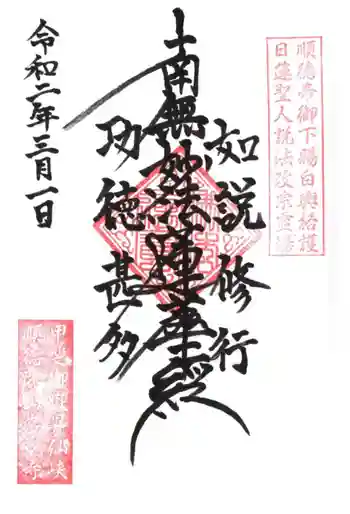 順徳帝御下賜白輿給護
日蓮聖人説法改宗霊場
如説修行
南無妙法蓮華経
功徳甚多
令和二年三月一日